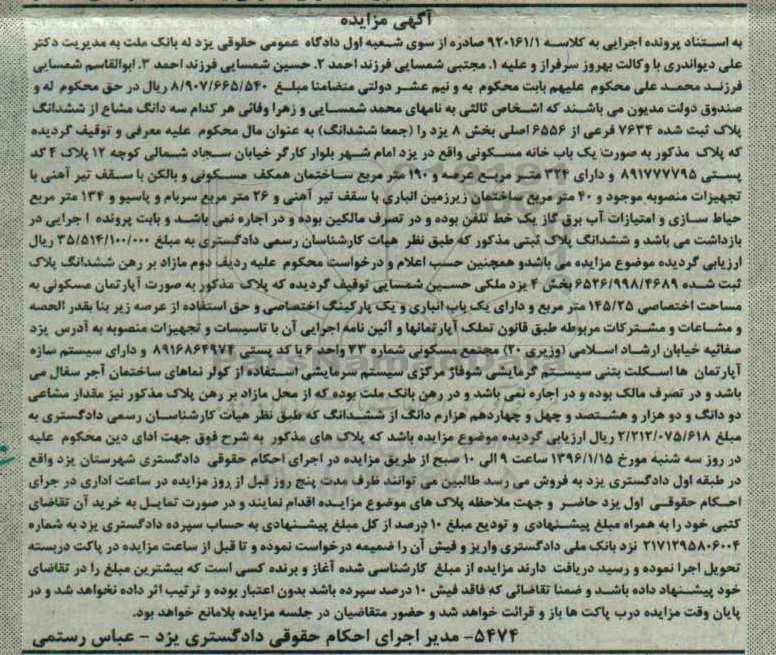 آگهی مزایده
به استناد پرونده اجرایی به کلاسه ۹۲۰۱۶۱/۱ صادره از سوی شعبه اول دادگاه عمومی حقوقی یزد له بانک ملت به مدیریت دکتر
علی دیواندری با وکالت بهروز سرفراز و علیه ۱. مجتبی شمسایی فرزند احمد ۲. حسین شمسایی فرزند احمد ۳. ابوالقاسم شمسایی
فرزند محمد علی محکوم علیهم بابت محکوم به و نیم عشر دولتی متضامنا مبلغ ۸/۹۰۷/۶۶۵/۵۴۰ ریال در حق محکوم له و
صندوق دولت مدیون می باشند که اشخاص ثالثی به نامهای محمد شمسایی و زهرا وفائی هر کدام سه دانگ مشاع از ششدانگ
پلاک ثبت شده ۷۶۳۴ فرعی از ۶۵۵۶ اصلی بخش ۸ یزد را (جمعا ششدانگ) به عنوان مال محکوم علیه معرفی و توقیف گردیده
که پلاک مذکور به صورت یک باب خانه مسکونی واقع در یزد امام شهر بلوار کارگر خیابان سجاد شمالی کوچه ۱۲ پلاک ۴ کد
پستی ۸۹۱۷۷۷۷۹۵ و دارای ۳۲۴ متر مربع عرصه و ۱۹۰ متر مربع ساختمان همکف مسکونی و بالکن با سقف تیر آهنی با
تجهیزات منصوبه موجود و ۴۰ متر مربع ساختمان زیرزمین انباری با سقف تیر آهنی و ۲۶ متر مربع سربام و پاسیو و ۱۳۴ متر مربع
حیاط سازی و امتیازات آب برق گاز یک خط تلفن بوده و در تصرف مالکین بوده و در اجاره نمی باشد و بابت پرونده ا جرایی در
بازداشت می باشد و ششدانگ پلاک ثبتی مذکور که طبق نظر هیات کارشناسان رسمی دادگستری به مبلغ ۳۵/۵۱۴/۱۰۰/۰۰۰ ریال
ارزیابی گردیده موضوع مزایده می باشدو همچنین حسب اعلام و درخواست محکوم علیه ردیف دوم مازاد بر رهن ششدانگ پلاک
ثبت شده ۶۵۲۶/۹۹۸/۴۶۸۹ بخش ۴ یزد ملکی حسین شمسایی توقیف گردیده که پلاک مذکور به صورت آپارتمان مسکونی به
مساحت اختصاصی ۱۴۵/۲۵ متر مربع و دارای یک باب انباری و یک پارکینگ اختصاصی و حق استفاده از عرصه زیر بنا بقدر الحصه
و مشاعات و مشترکات مربوطه طبق قانون تملک آپارتمانها و آئین نامه اجرایی آن با تاسیسات و تجهیزات منصوبه به آدرس یزد
صفائیه خیابان ارشاد اسلامی (وزیری ۲۰) مجتمع مسکونی شماره ۳۳ واحد ۶ با کد پستی ۸۹۱۶۸۶۴۹۷۴ و دارای سیستم سازه
آپارتمان ها اسکلت بتنی سیستم گرمایشی شوفاژ مرکزی سیستم سرمایشی استفاده از کولر نماهای ساختمان آجر سفال می
باشد و در تصرف مالک بوده و در اجاره نمی باشد و در رهن بانک ملت بوده که از محل مازاد بر رهن پلاک مذکور نیز مقدار مشاعی
دو دانگ و دو هزار و هشتصد و چهل و چهاردهم هزارم دانگ از ششدانگ که طبق نظر هیات کارشناسان رسمی دادگستری به
مبلغ ۲/۲۱۲/۰۷۵/۶۱۸ ریال ارزیابی گردیده موضوع مزایده باشد که پلاک های مذکور به شرح فوق جهت ادای دین محکوم علیه
در روز سه شنبه مورخ ۱۳۹۶/۱/۱۵ ساعت ۹ الی ۱۰ صبح از طریق مزایده در اجرای احکام حقوقی دادگستری شهرستان یزد واقع
در طبقه اول دادگستری یزد به فروش می رسد طالبین می توانند ظرف مدت پنج روز قبل از روز مزایده در ساعت اداری در جرای
احکام حقوقی اول یزد حاضر و جهت ملاحظه پلاک های موضوع مزایده اقدام نمایند و در صورت تمایل به خرید آن تقاضای
کتبی خود را به همراه مبلغ پیشنهادی و تودیع مبلغ ۱۰ درصد از کل مبلغ پیشنهادی به حساب سپرده دادگستری یزد به شماره
۲۱۷۱۲۹۵۸۰۶۰۰۴ نزد بانک ملی دادگستری واریز و فیش آن را ضمیمه درخواست نموده و تا قبل از ساعت مزایده در پاکت دربسته
تحویل اجرا نموده و رسید دریافت دارند مزایده از مبلغ کارشناسی شده آغاز و برنده کسی است که بیشترین مبلغ را در تقاضای
خود پیشنهاد داده باشند و ضمنا تقاضائی که فاقد فیش ۱۰ درصد سپرده باشد بدون اعتبار بوده و ترتیب اثر داده نخواهد شد و در
پایان وقت مزایده درب پاکت ها باز و قرائت خواهد شد و حضور متقاضیان در جلسه مزایده بلامانع خواهد بود.
۵۴۷۴- مدیر اجرای احکام حقوقی دادگستری یزد - عباس رستمی